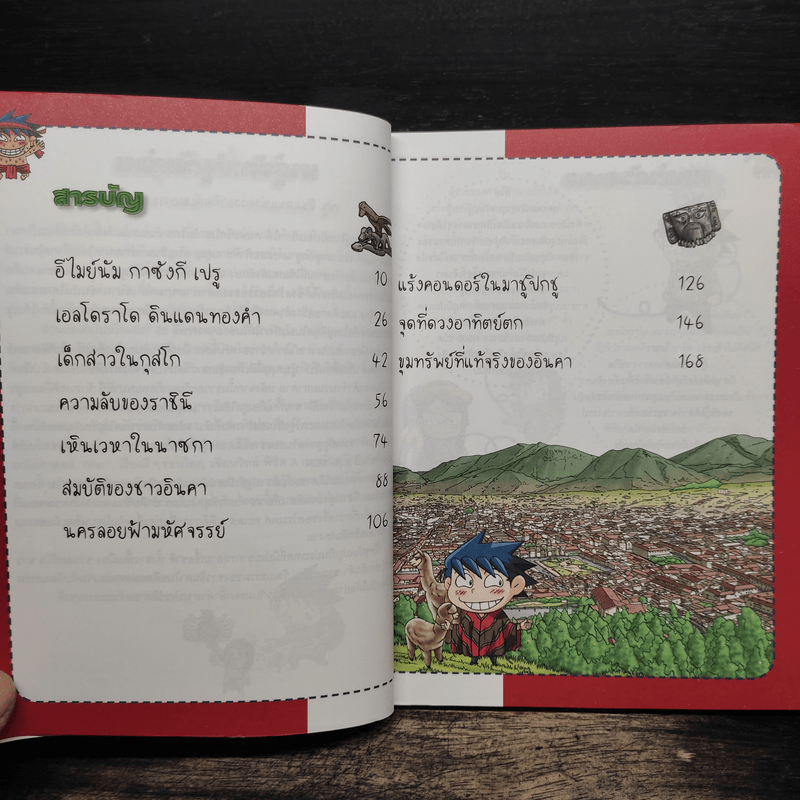 สารบัญ
อีไมย์นัม กาซังกี เปรู 10
เอลโดราโด ดินแดนทองคำ 26
เด็กสาวในกุสโก 42
ความลับของราชินี 56
เหินเวหาในนาซกา 74
สมบัติของชาวอินคา 88
นครลอยฟ้ามหัศจรรย์ 106
แร้งคอนดอร์ในมาชูปิกชู 126
จุดที่ดวงอาทิตย์ตก 146
ขุมทรัพย์ที่แท้จริงของอินคา 168